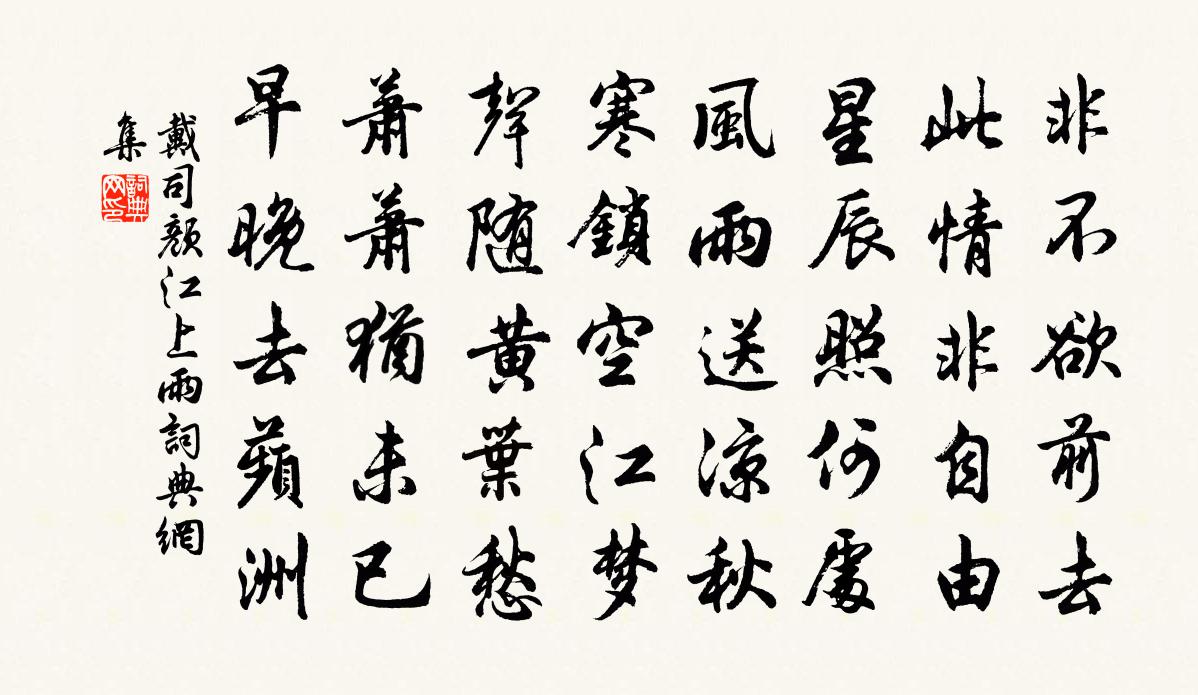 非不欲前去
此情非自由
星辰照何處
風雨送涼秋
寒鎖空江梦
聲随黄葉愁
蕭蕭猶未已
早晚去蘋洲
戴司顏江上雨詞典網
集
詞典
网印